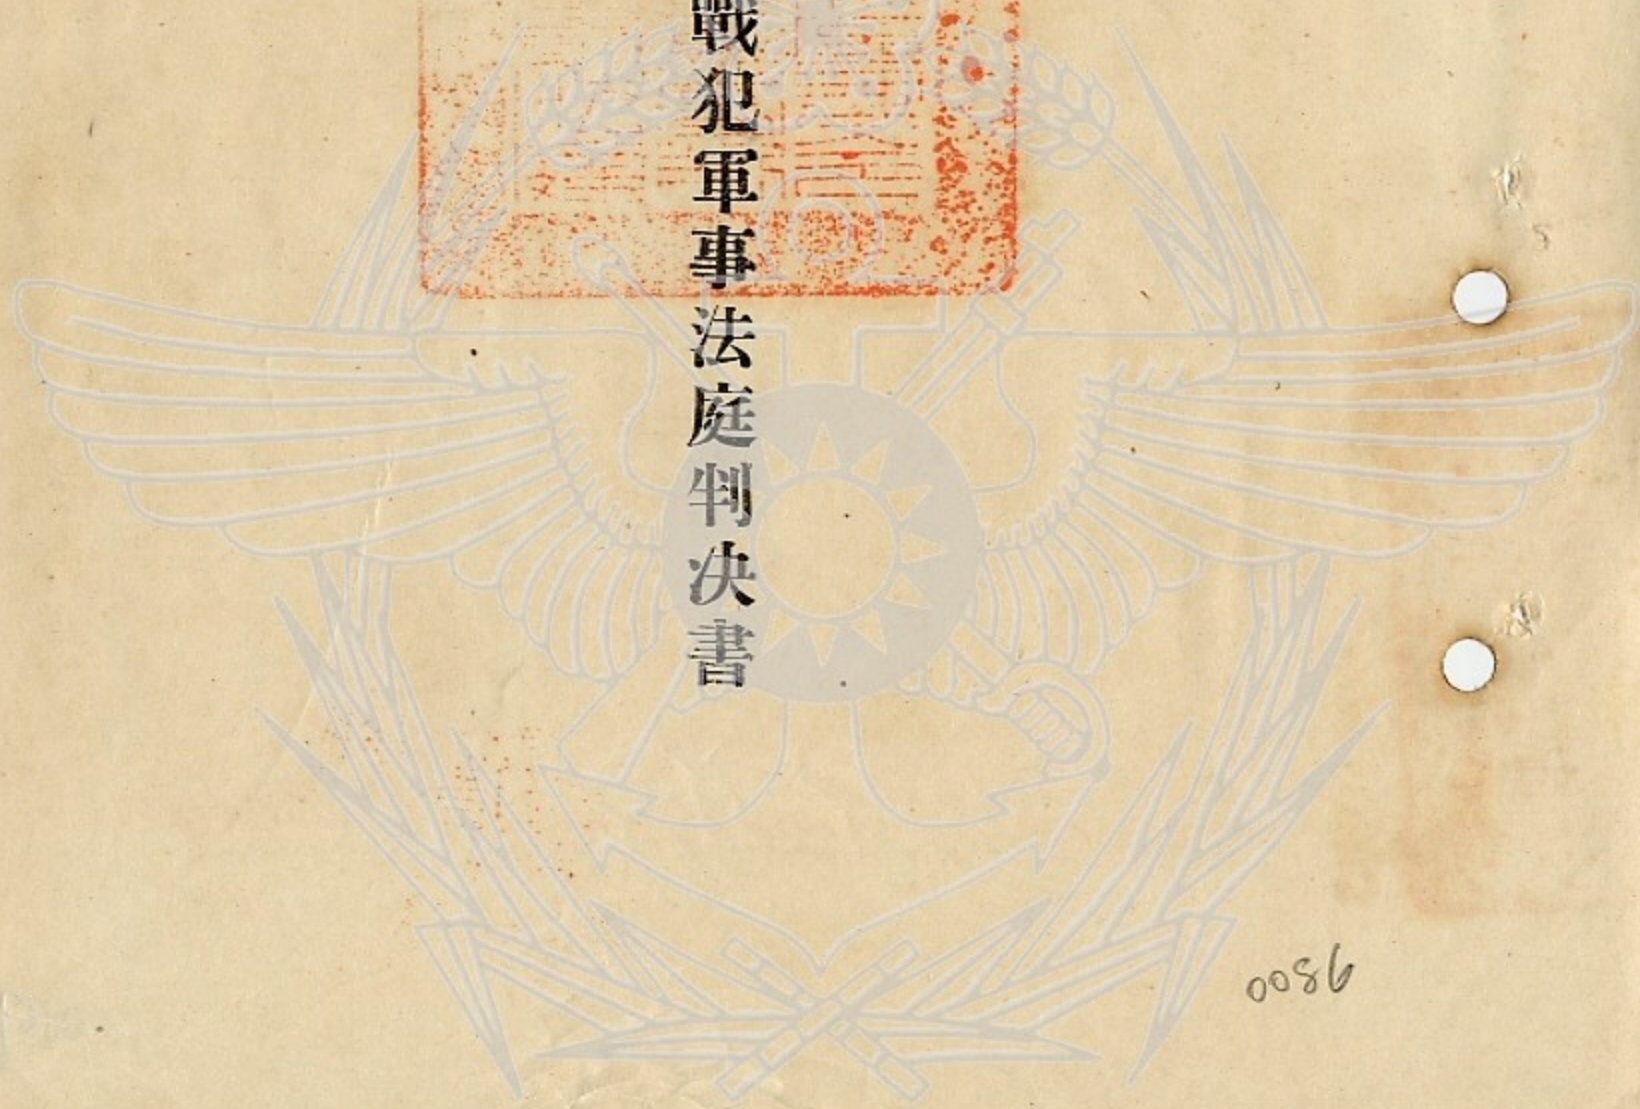 戰犯軍事法庭判决書
0086